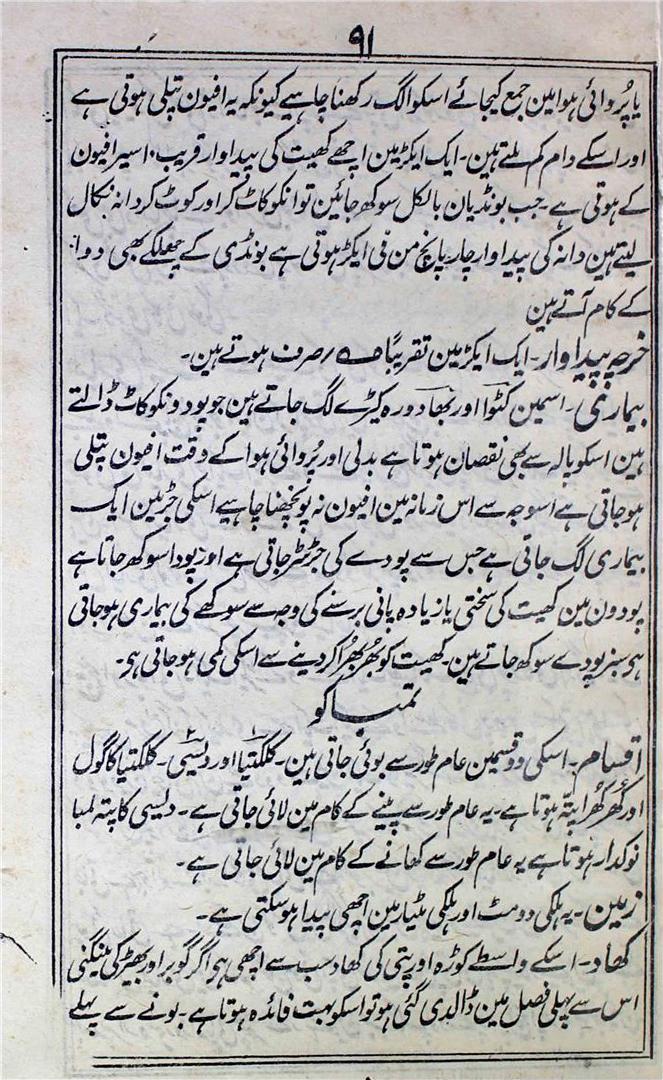 ۹۱
یا پُروائی ہوا مین جمع کیجائے اسکو الگ رکھنا چاہیے کیونکہ یہ افیون پتلی ہوتی ہے
اور اسکے دام کم ملتے ہین۔ ایک ایکڑ مین اچھے کھیت کی پیداوار قریب ۱۰ سیر افیون
کے ہوتی ہے۔ جب بونڈیان بالکل سوکھ جائین تو انکو کاٹ کر اور کوٹ کر دانہ نکال
لیتے ہین دانہ کی پیداوار چار پانچ من فی ایکڑ ہوتی ہے بونڈی کے چھلکے بھی دوا
کے کام آتے ہین
خرچہ پیداوار۔ ایک ایکڑ مین تقریباً صرف ہوتے ہین۔
بیماری۔ اسمین کٹوا اور کیڑے لگ جاتے ہین جو پودونکو کاٹ ڈالتے
ہین اسکو پالہ سے بھی نقصان ہوتا ہے بدلی اور پُروائی ہوا کے وقت افیون پتلی
ہو جاتی ہے اسوجہ سے اس زمانہ مین افیون نہ پونچھنا چاہیے اسکی جڑ مین ایک
بیماری لگ جاتی ہے جس سے پودے کی جڑ سڑ جاتی ہے اور پودا سوکھ جاتا ہے
پودون مین کھیت کی سختی یا زیادہ پانی برسنے کی وجہ سے سوکھے کی بیماری ہو جاتی
ہی سبز پودے سوکھ جاتے ہین۔ کھیت کو بُھربُھرا کر دینے سے اسکی کمی ہو جاتی ہی۔
تمباکو
اقسام۔ اسکی دو قسمین عام طور سے بوئی جاتی ہین۔ ۱ کلکتیا اور ۲ دیسی۔ کلکتیا کا گول
اور کُھر کُھرا پتہ ہوتا ہے۔ یہ عام طور سے پینے کے کام مین لائی جاتی ہے۔ دیسی کا پتہ لمبا
نوکدار ہوتا ہے یہ عام طور سے کھانے کے کام مین لائی جاتی ہے۔
زمین۔ یہ ہلکی دومٹ اور ہلکی مٹیار مین اچھی پیدا ہو سکتی ہے۔
کھاد۔ اسکے واسطے کوڑہ اور پتی کی کھاد سب سے اچھی ہی اگر گوبر اور بھیڑ کی مینگنی
اس سے پہلی فصل مین ڈالدی گئی ہو تو اسکو بہت فائدہ ہوتا ہے۔ بونے سے پہلے